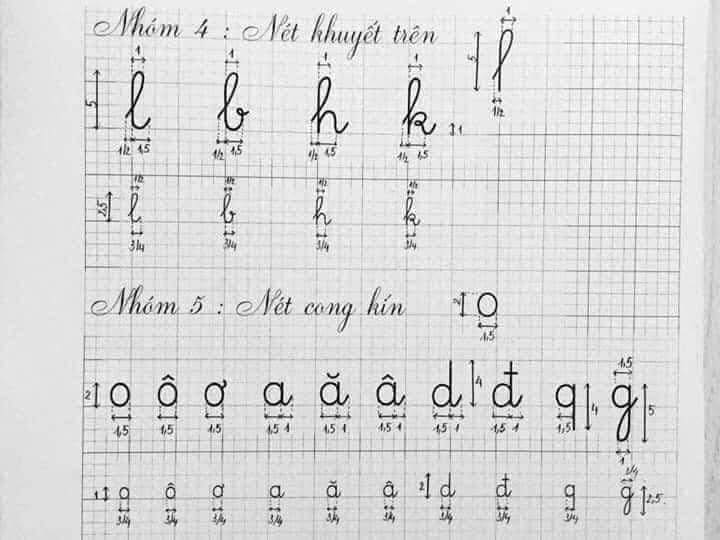 Nhóm 4 : Nét khuyết trên
1
5
1/2
1 1 1 1
5 l b h k 1
1/2 1,5 1/2 1,5 1/2 1,5 1/2 1,5
1/2 1/2 1/2 1/2
2,5 l b h k
3/4 3/4 3/4 3/4
Nhóm 5 : Nét cong kín 2 o
1,5
1,5
2 o ô ơ a ă â d 4 đ q 4 g 5
1,5 1,5 1,5 1,5 1 1,5 1 1,5 1 1,5 1 1,5 1 1,5 1
3/4
1 o ô ơ a ă â 2 d đ q g 2,5
3/4 3/4 3/4 3/4 3/4 3/4 3/4 3/4 3/4